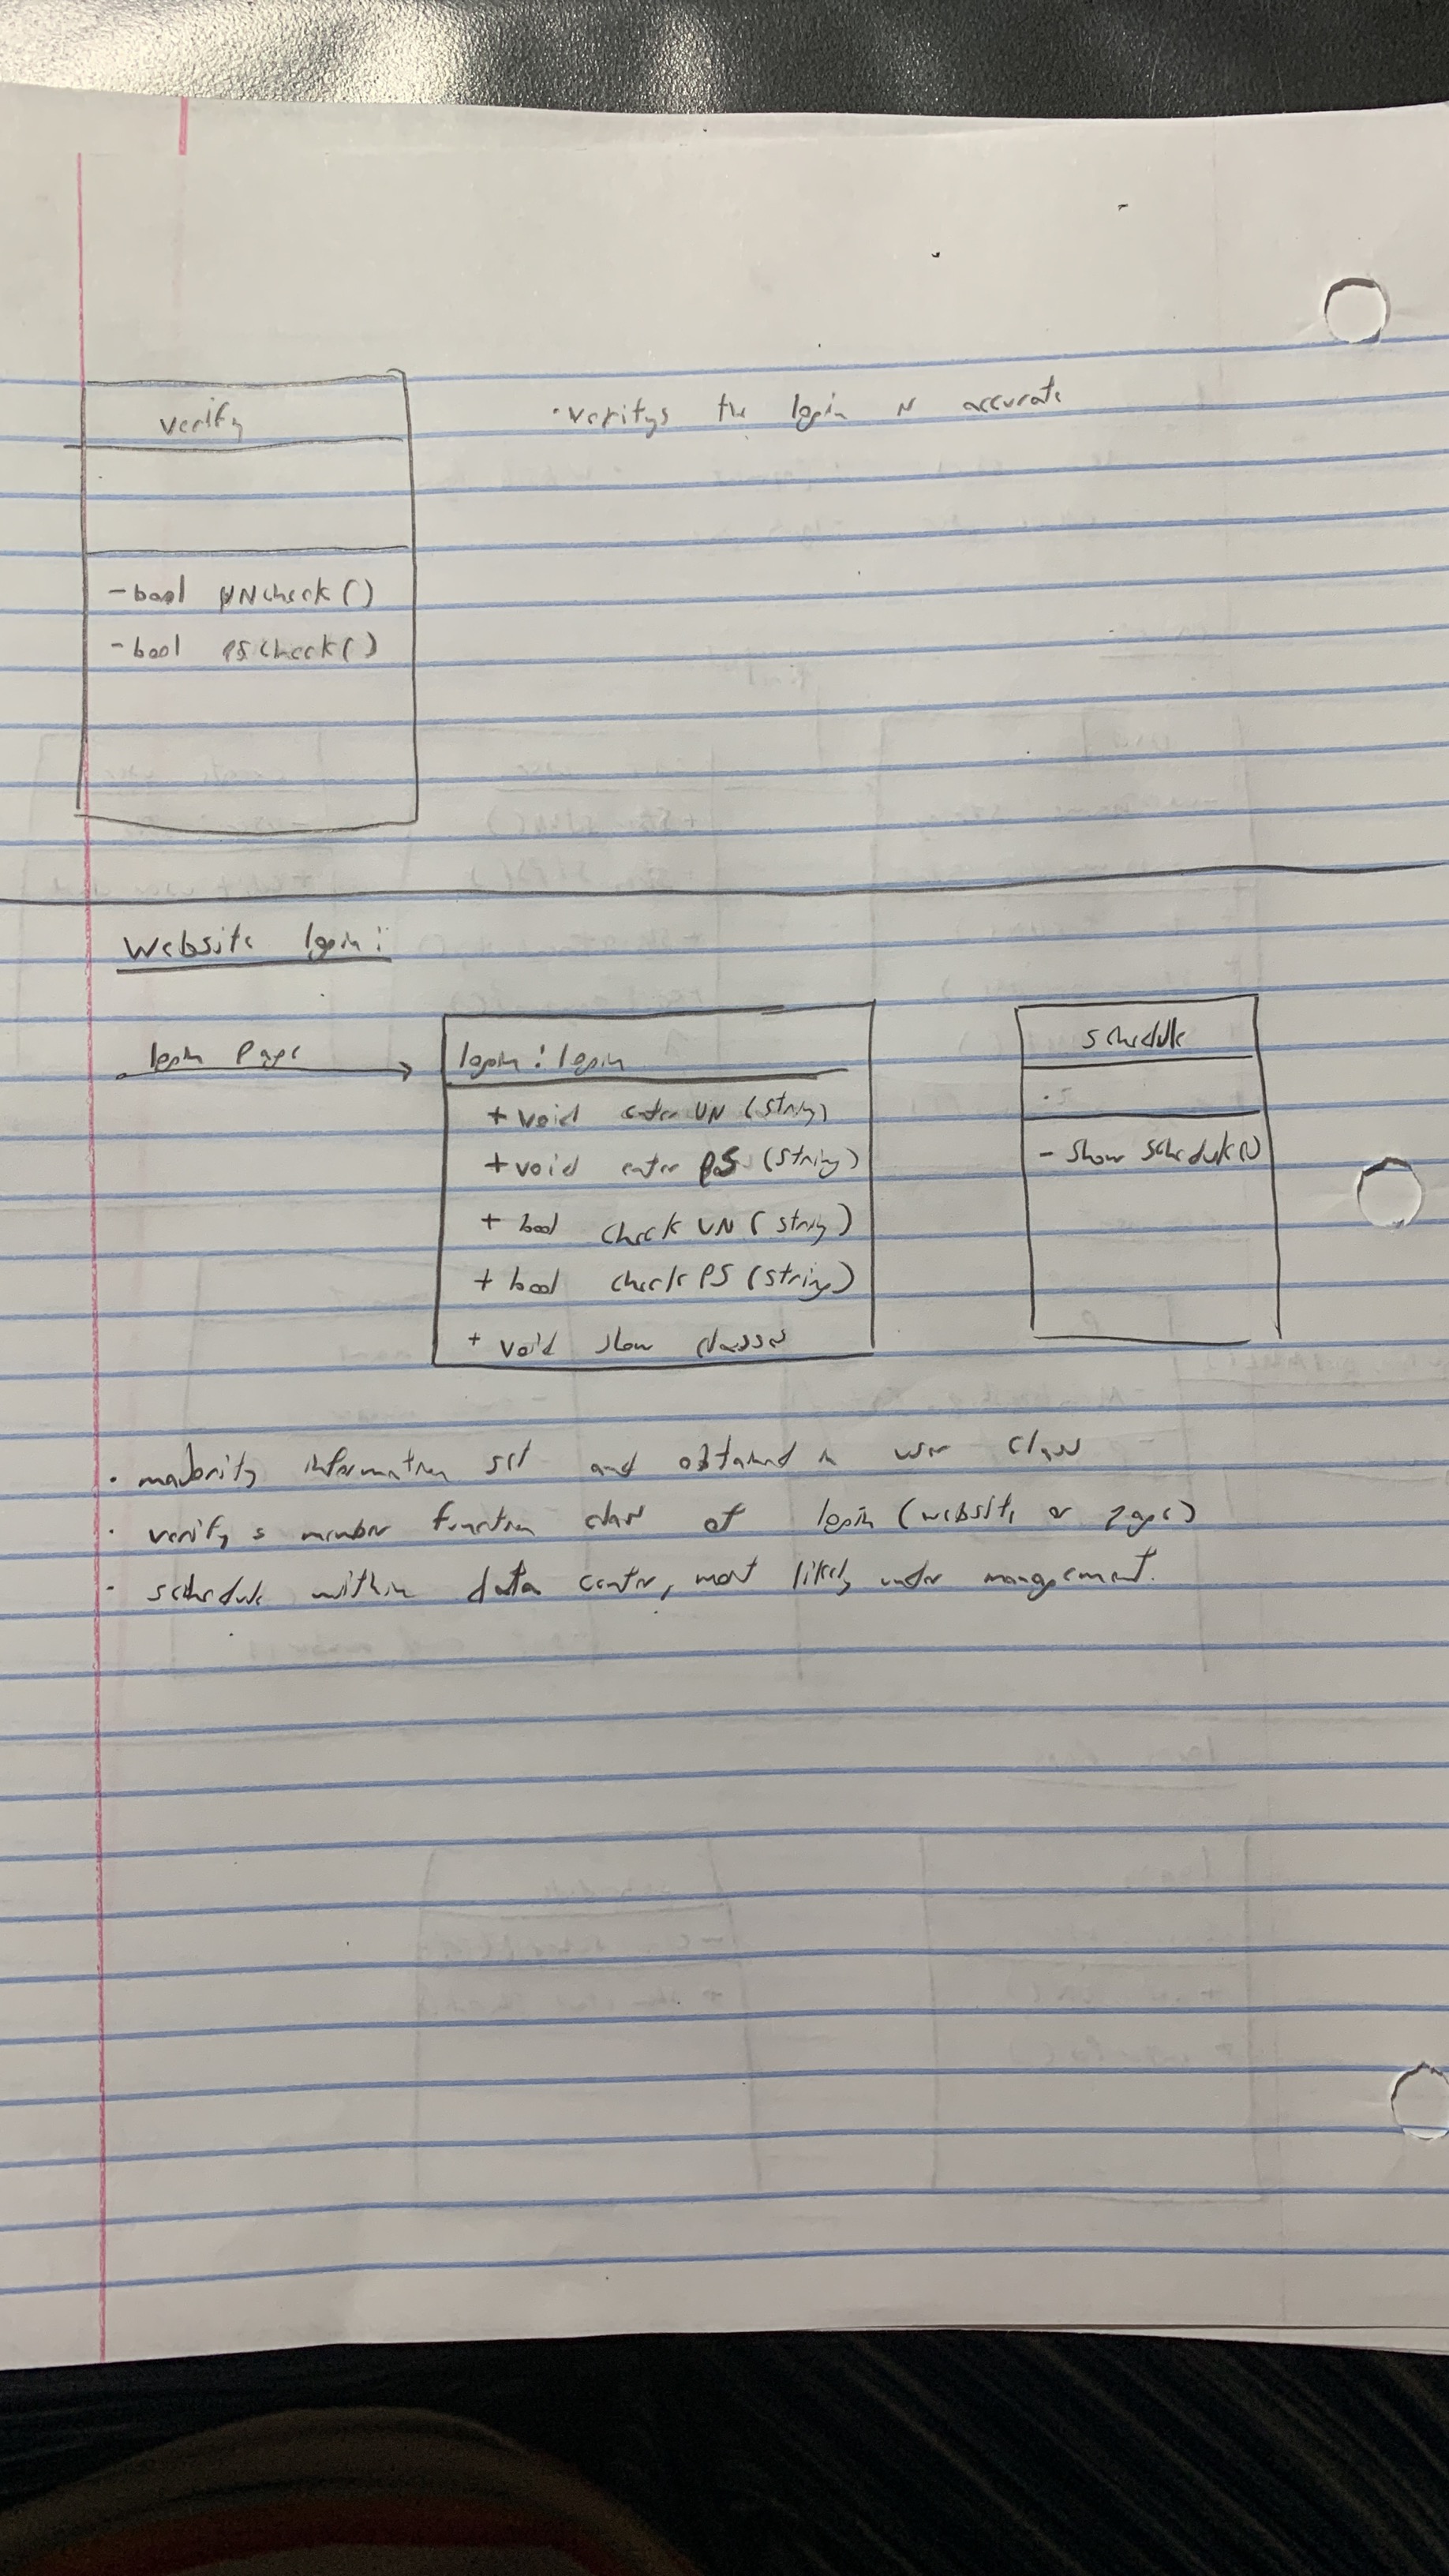 verify
• veritys the login is accurate
- bool UNcheck()
- bool PScheck()
Website login:
login Page
login : login
+ void enter UN (string)
+ void enter PS (string)
+ bool check UN (string)
+ bool check PS (string)
+ void show classes
schedule
- show schedule()
• majority information set and obtained in user class
• verify s member function class of login (website or page)
• schedule within data center, most likely under management.